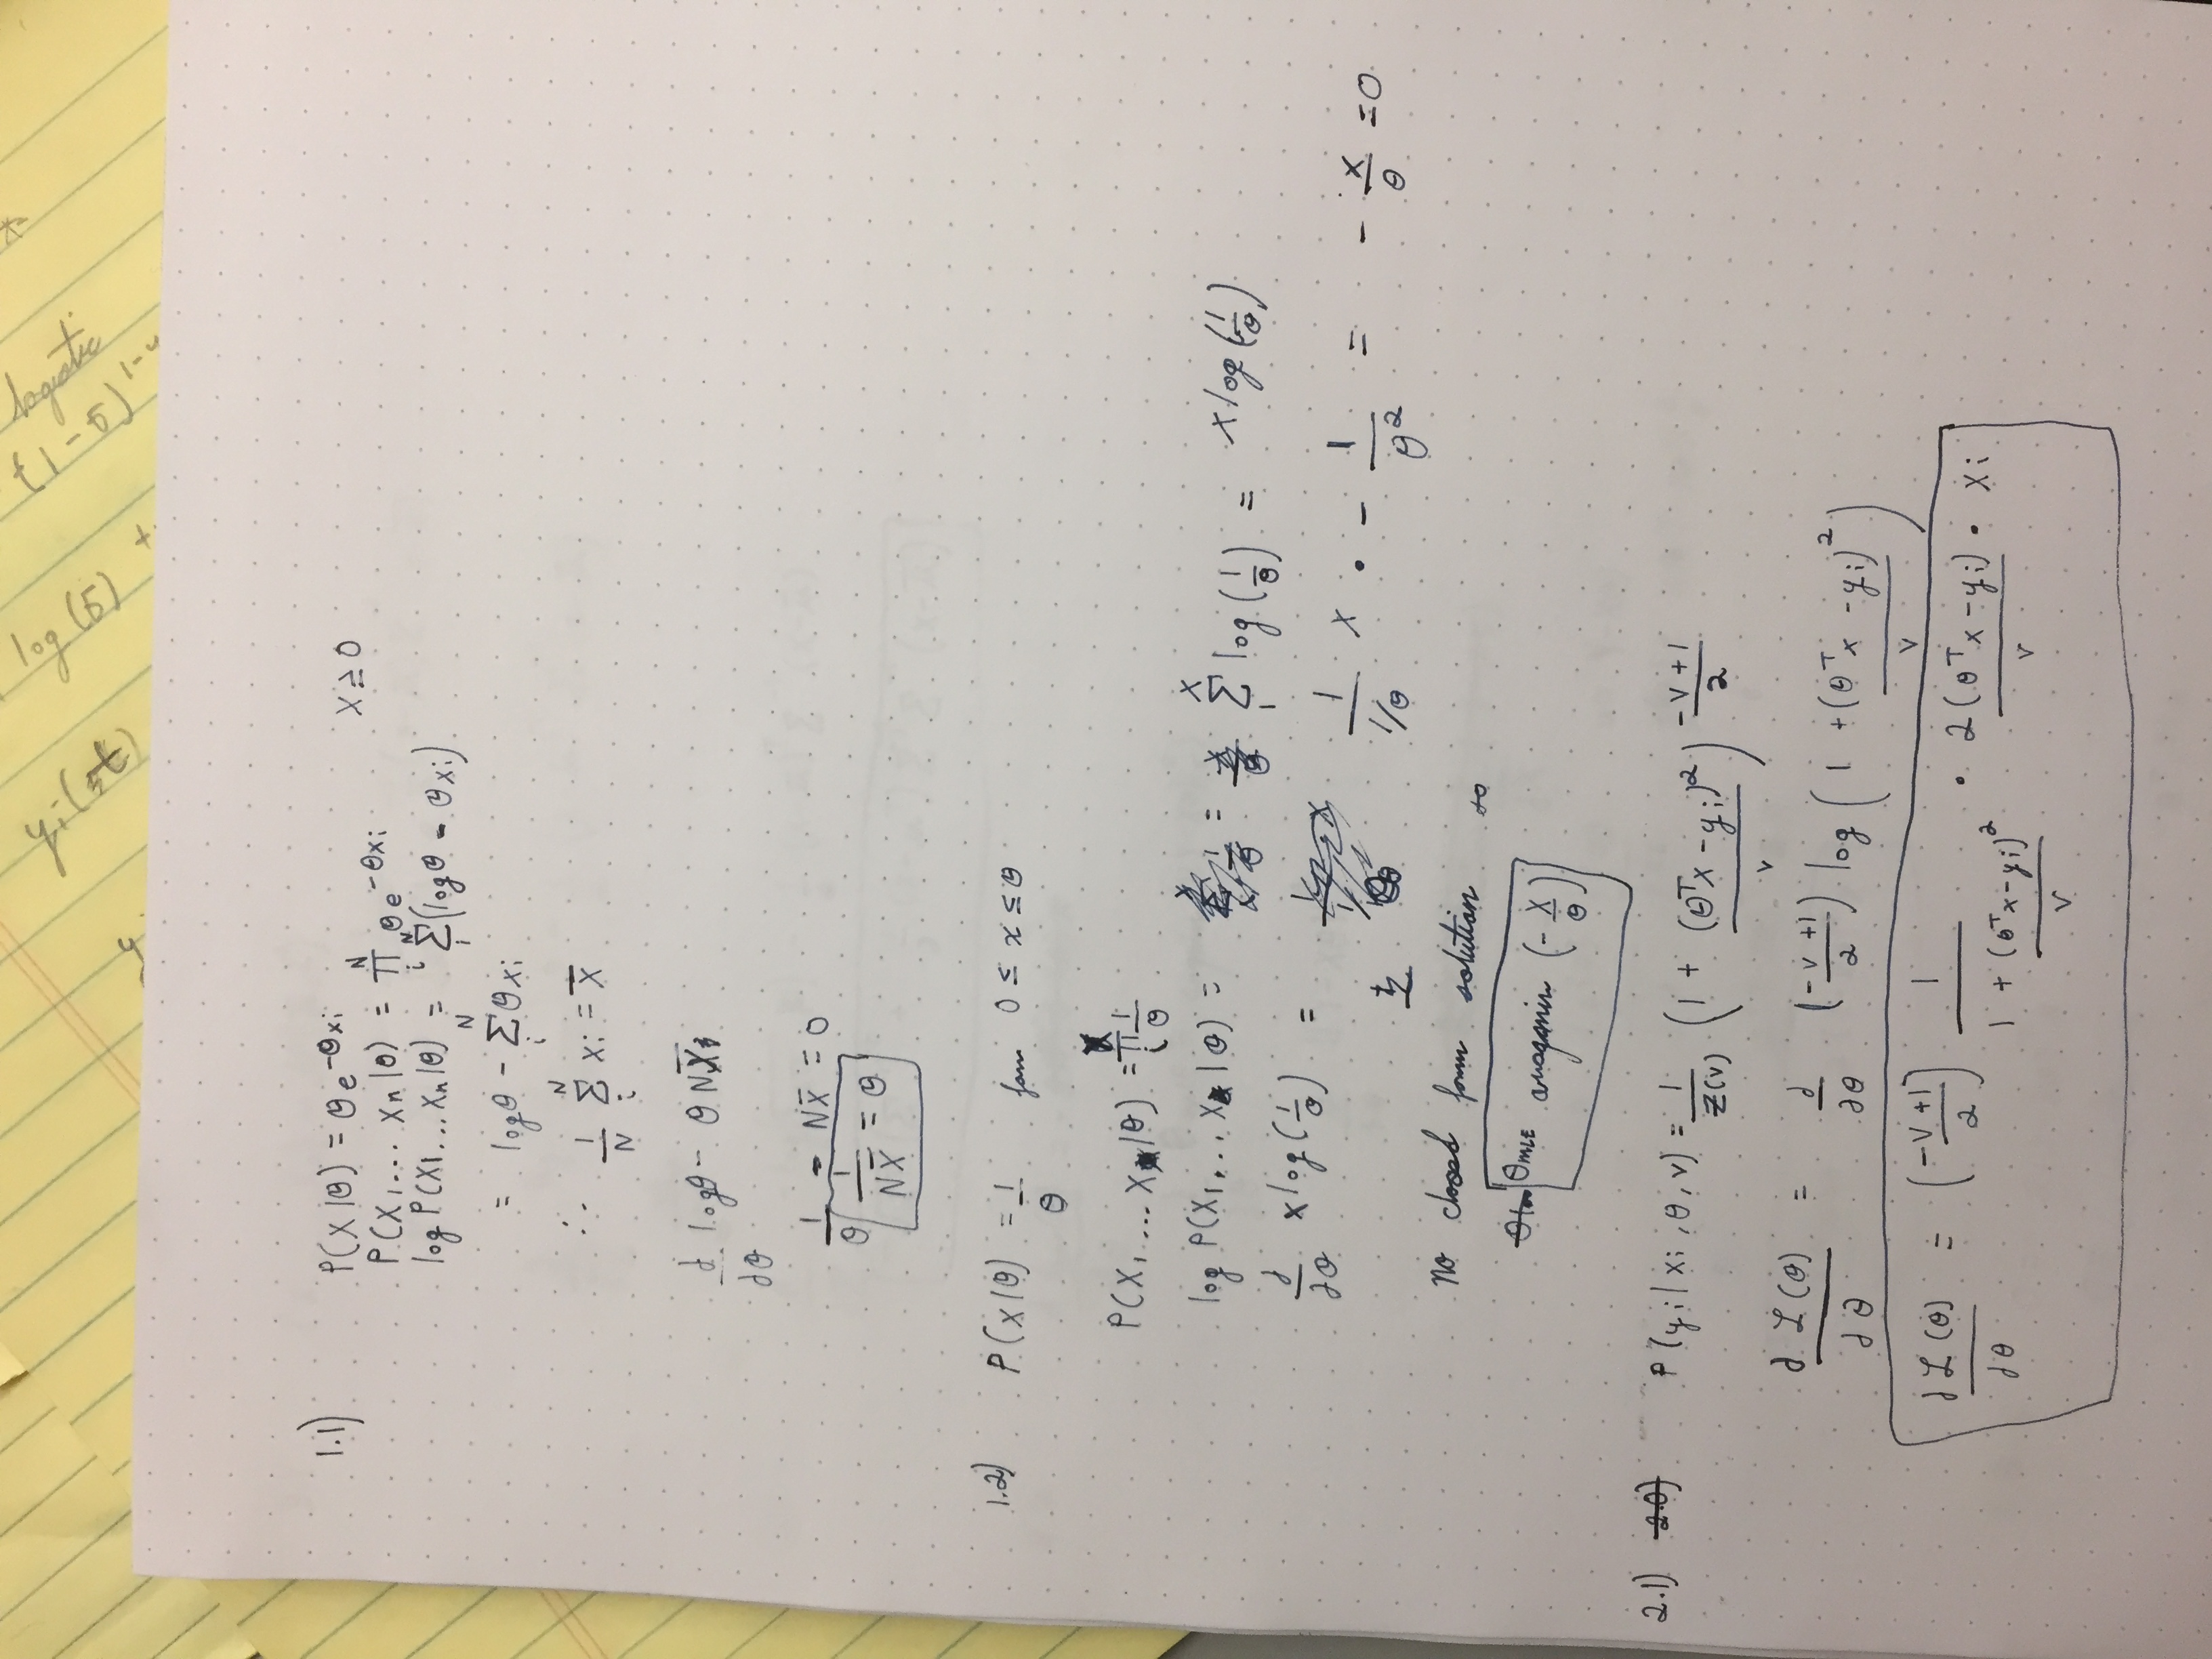 yi(
log(σ)
+
logistic
+(1-σ)
1.1)
P(X|θ) = θe^{-θxi}    X ≥ 0
P(X1... Xn|θ) = ∏_i^N θe^{-θxi}
log P(X1...Xn|θ) = Σ_i^N (logθ - θxi)
= logθ - Σ_i^N θxi
∴ 1/N Σ_i^N xi = X̄
∂/∂θ logθ - θNX̄
1/θ - NX̄ = 0
1/NX̄ = θ
1.2) P(X|θ) = 1/θ form 0 ≤ x ≤ θ
P(X1...X|θ) = ∏_i 1/θ
log P(X1...X|θ) = = Σ_1^X log(1/θ) = x log(1/θ)
∂/∂θ x log(1/θ) = 1/(1/θ) x · - 1/θ^2 = - x/θ = 0
No closed form solution so
θMLE argmin (- X/θ)
2.1) 2.0) P(yi|xi, θ, v) = 1/Z(v) (1 + (θ^T x - yi)^2/v) -v+1/2
∂ℒ(θ)/∂θ = ∂/∂θ (-v+1/2) log(1 + (θ^T x - yi)^2/v)
∂ℒ(θ)/∂θ = (-v+1/2) 1/(1 + (θ^T x - yi)^2/v) · 2(θ^T x - yi)/v · xi